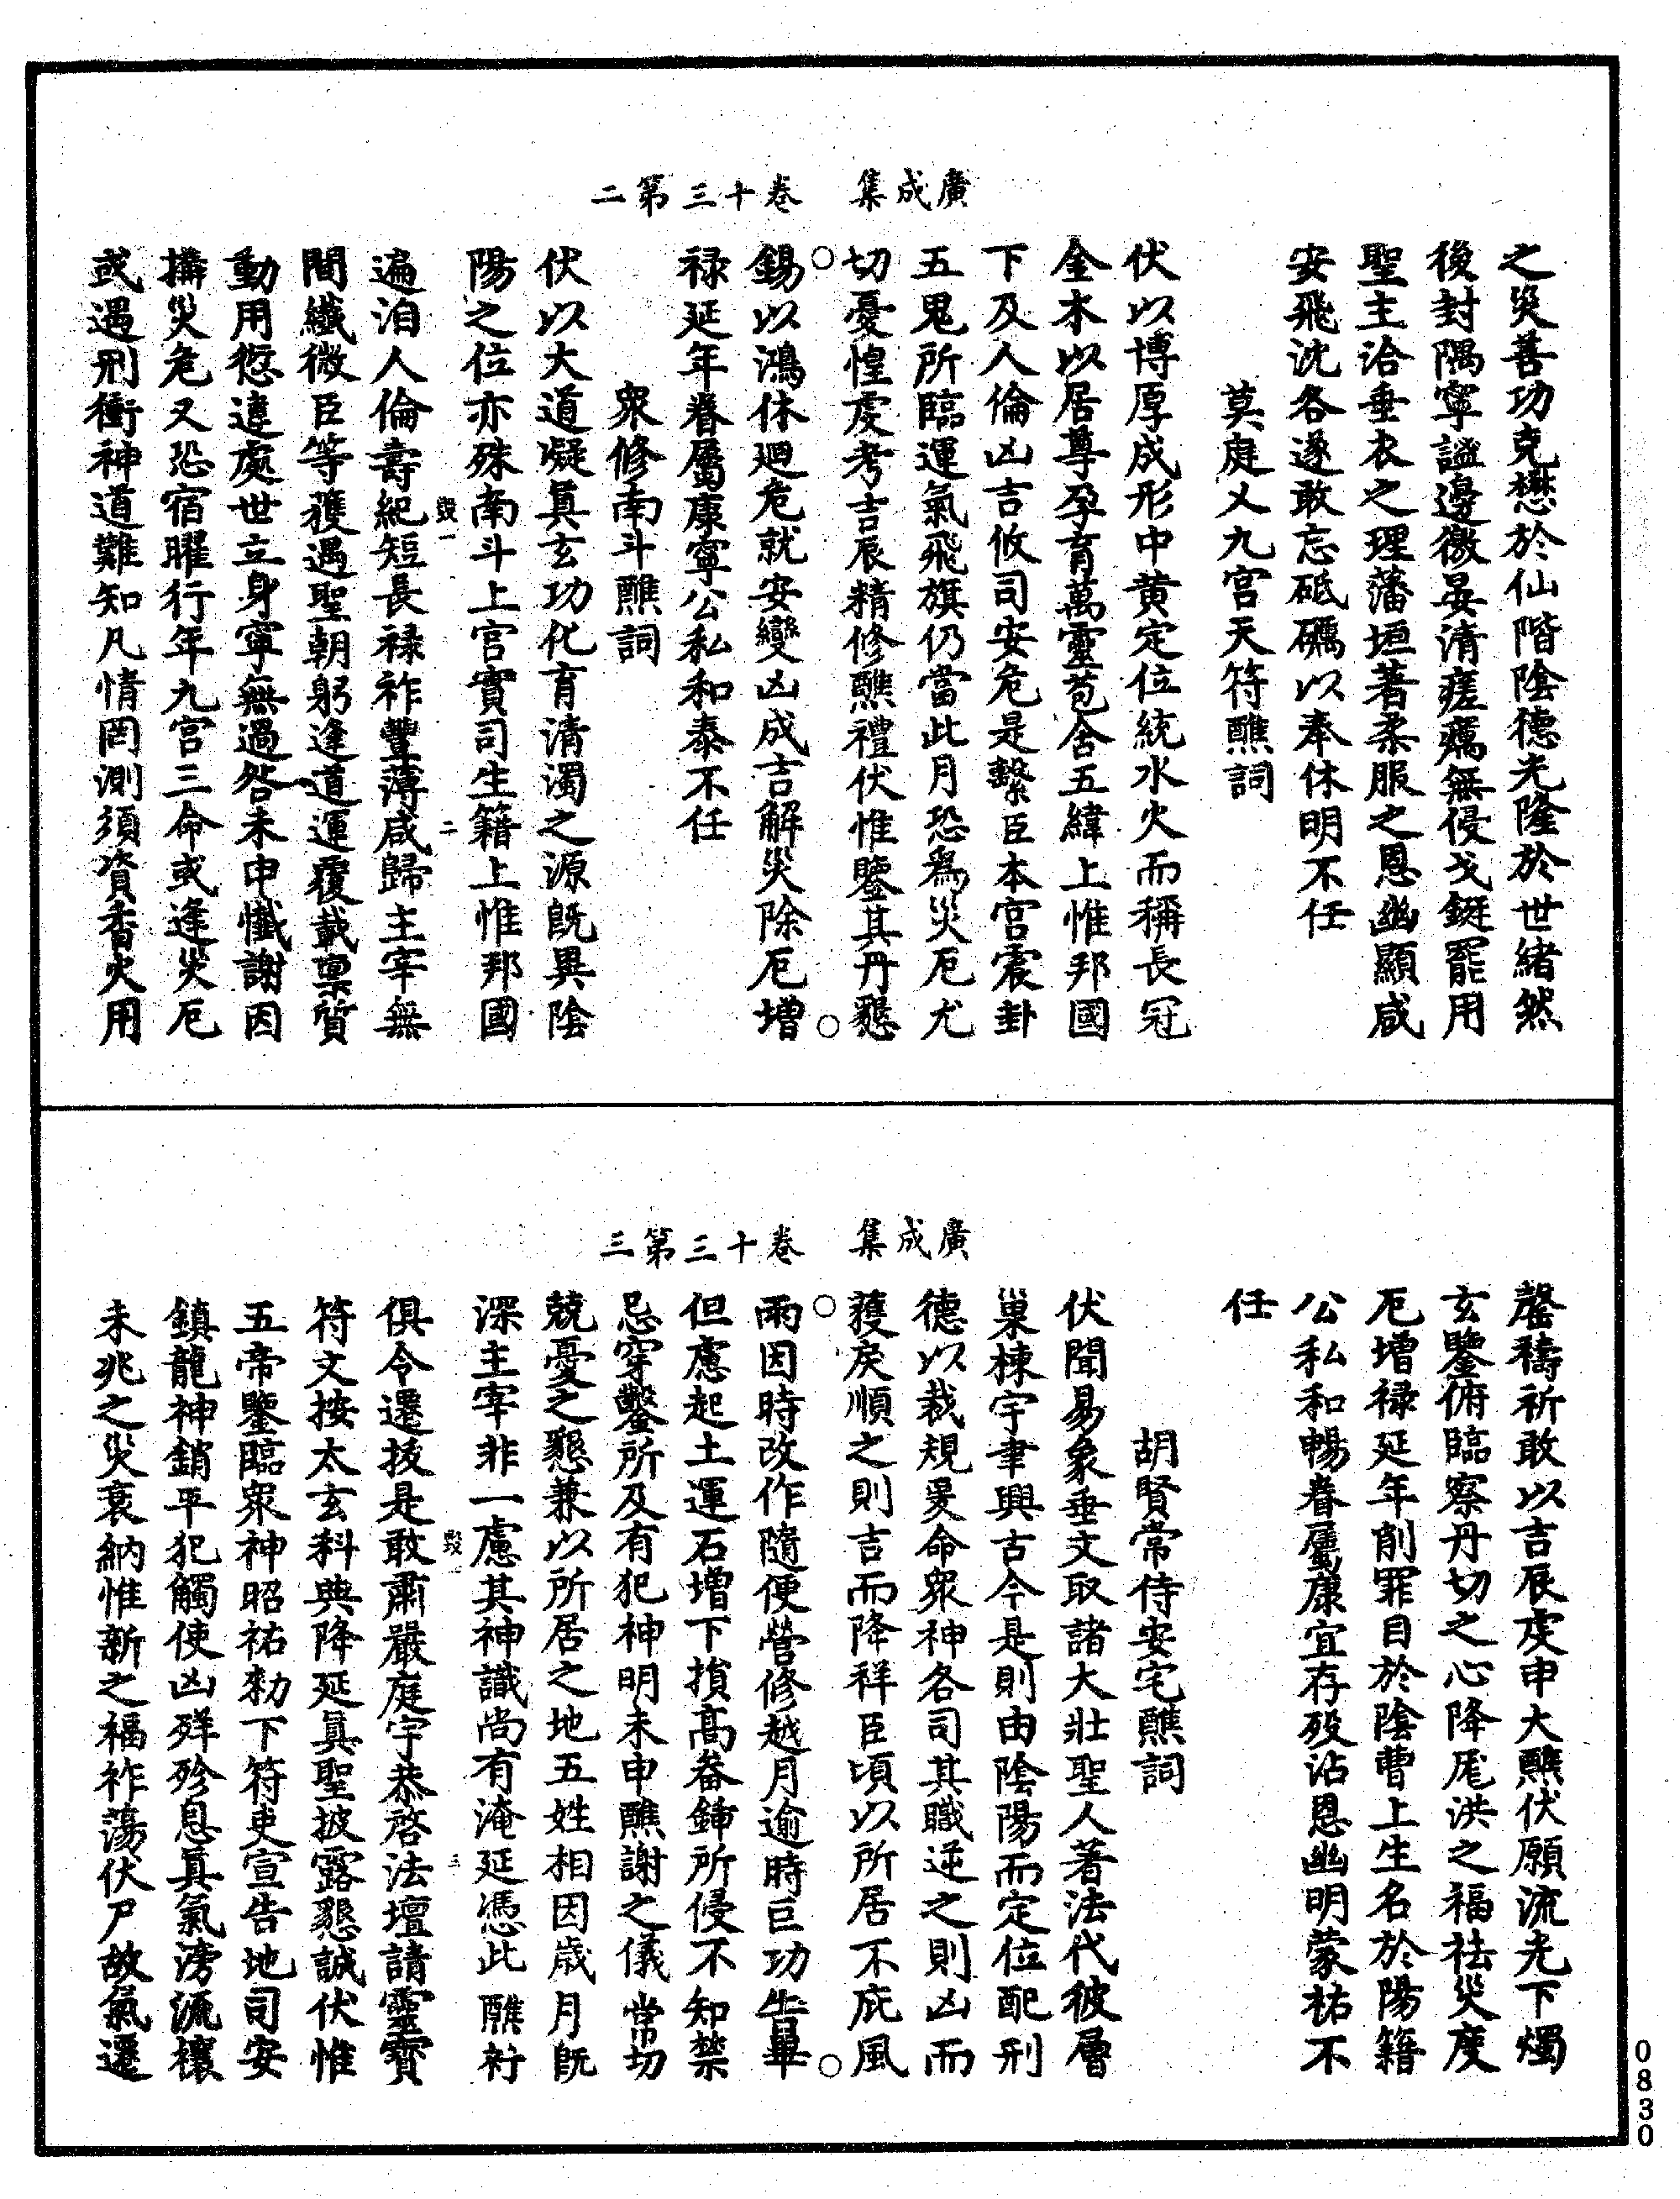 廣成集　卷十三第二
之災善功克懋於仙階陰德光隆於世緒然
後封隅寧謐邊徼晏清瘥癘無侵戈鋋罷用
聖主洽垂衣之理藩垣著柔服之恩幽顯咸
安飛沈各遂敢忘砥礪以奉休明不任
莫庭乂九宮天符醮詞
伏以博厚成形中黃定位統水火而稱長冠
金木以居尊孕育萬靈苞含五緯上惟邦國
下及人倫凶吉攸司安危是繫臣本宮震卦
五鬼所臨運氣飛旗仍當此月恐爲災厄尤
切憂惶虔考吉辰精修醮禮伏惟鑒其丹懇
錫以鴻休迴危就安變凶成吉解災除厄增
祿延年眷屬康寧公私和泰不任
衆修南斗醮詞
伏以大道凝眞玄功化育清濁之源既異陰
陽之位亦殊南斗上宮實司生籍上惟邦國
遍洎人倫壽紀短長祿祚豐薄咸歸主宰無
間纖微臣等獲遇聖朝躬逢道運覆載稟質
動用愆違處世立身寧無過咎未申懺謝因
搆災危又恐宿曜行年九宮三命或逢災厄
或遇刑衝神道難知凡情罔測須資香火用
廣成集　卷十三第三
罄禱祈敢以吉辰虔申大醮伏願流光下燭
玄鑒俯臨察丹切之心降厖洪之福祛災度
厄增祿延年削罪目於陰曹上生名於陽籍
公私和暢眷屬康宜存歿沾恩幽明蒙祐不
任
胡賢常侍安宅醮詞
伏聞易象垂文取諸大壯聖人著法代彼層
巢棟宇聿興古今是則由陰陽而定位配刑
德以裁規爰命衆神各司其職逆之則凶而
獲戾順之則吉而降祥臣頃以所居不庇風
雨因時改作隨便營修越月逾時巨功告畢
但慮起土運石增下損高畚鍤所侵不知禁
忌穿鑿所及有犯神明未申醮謝之儀常切
兢憂之懇兼以所居之地五姓相因歲月既
深主宰非一慮其神識尚有淹延憑此醮祈
俱令遷拔是敢肅嚴庭宇恭啓法壇請靈寶
符文按太玄科典降延眞聖披露懇誠伏惟
五帝鑒臨衆神昭祐勑下符吏宣告地司安
鎮龍神銷平犯觸使凶殃殄息眞氣滂流禳
未兆之災衰納惟新之福祚蕩伏尸故氣遷
0830